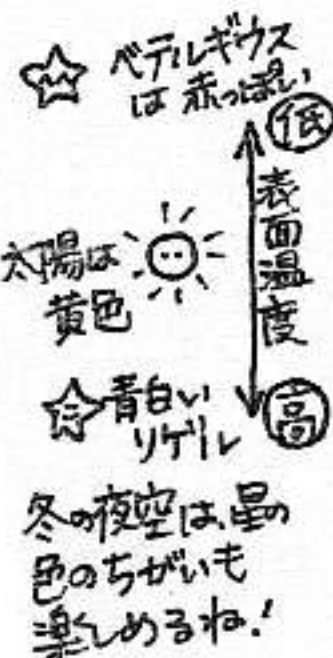 ベテルギウス
は赤っぽい
低
表面温度
太陽は
黄色
高
青白い
リゲル
冬の夜空は、星の
色のちがいも
楽しめるね!